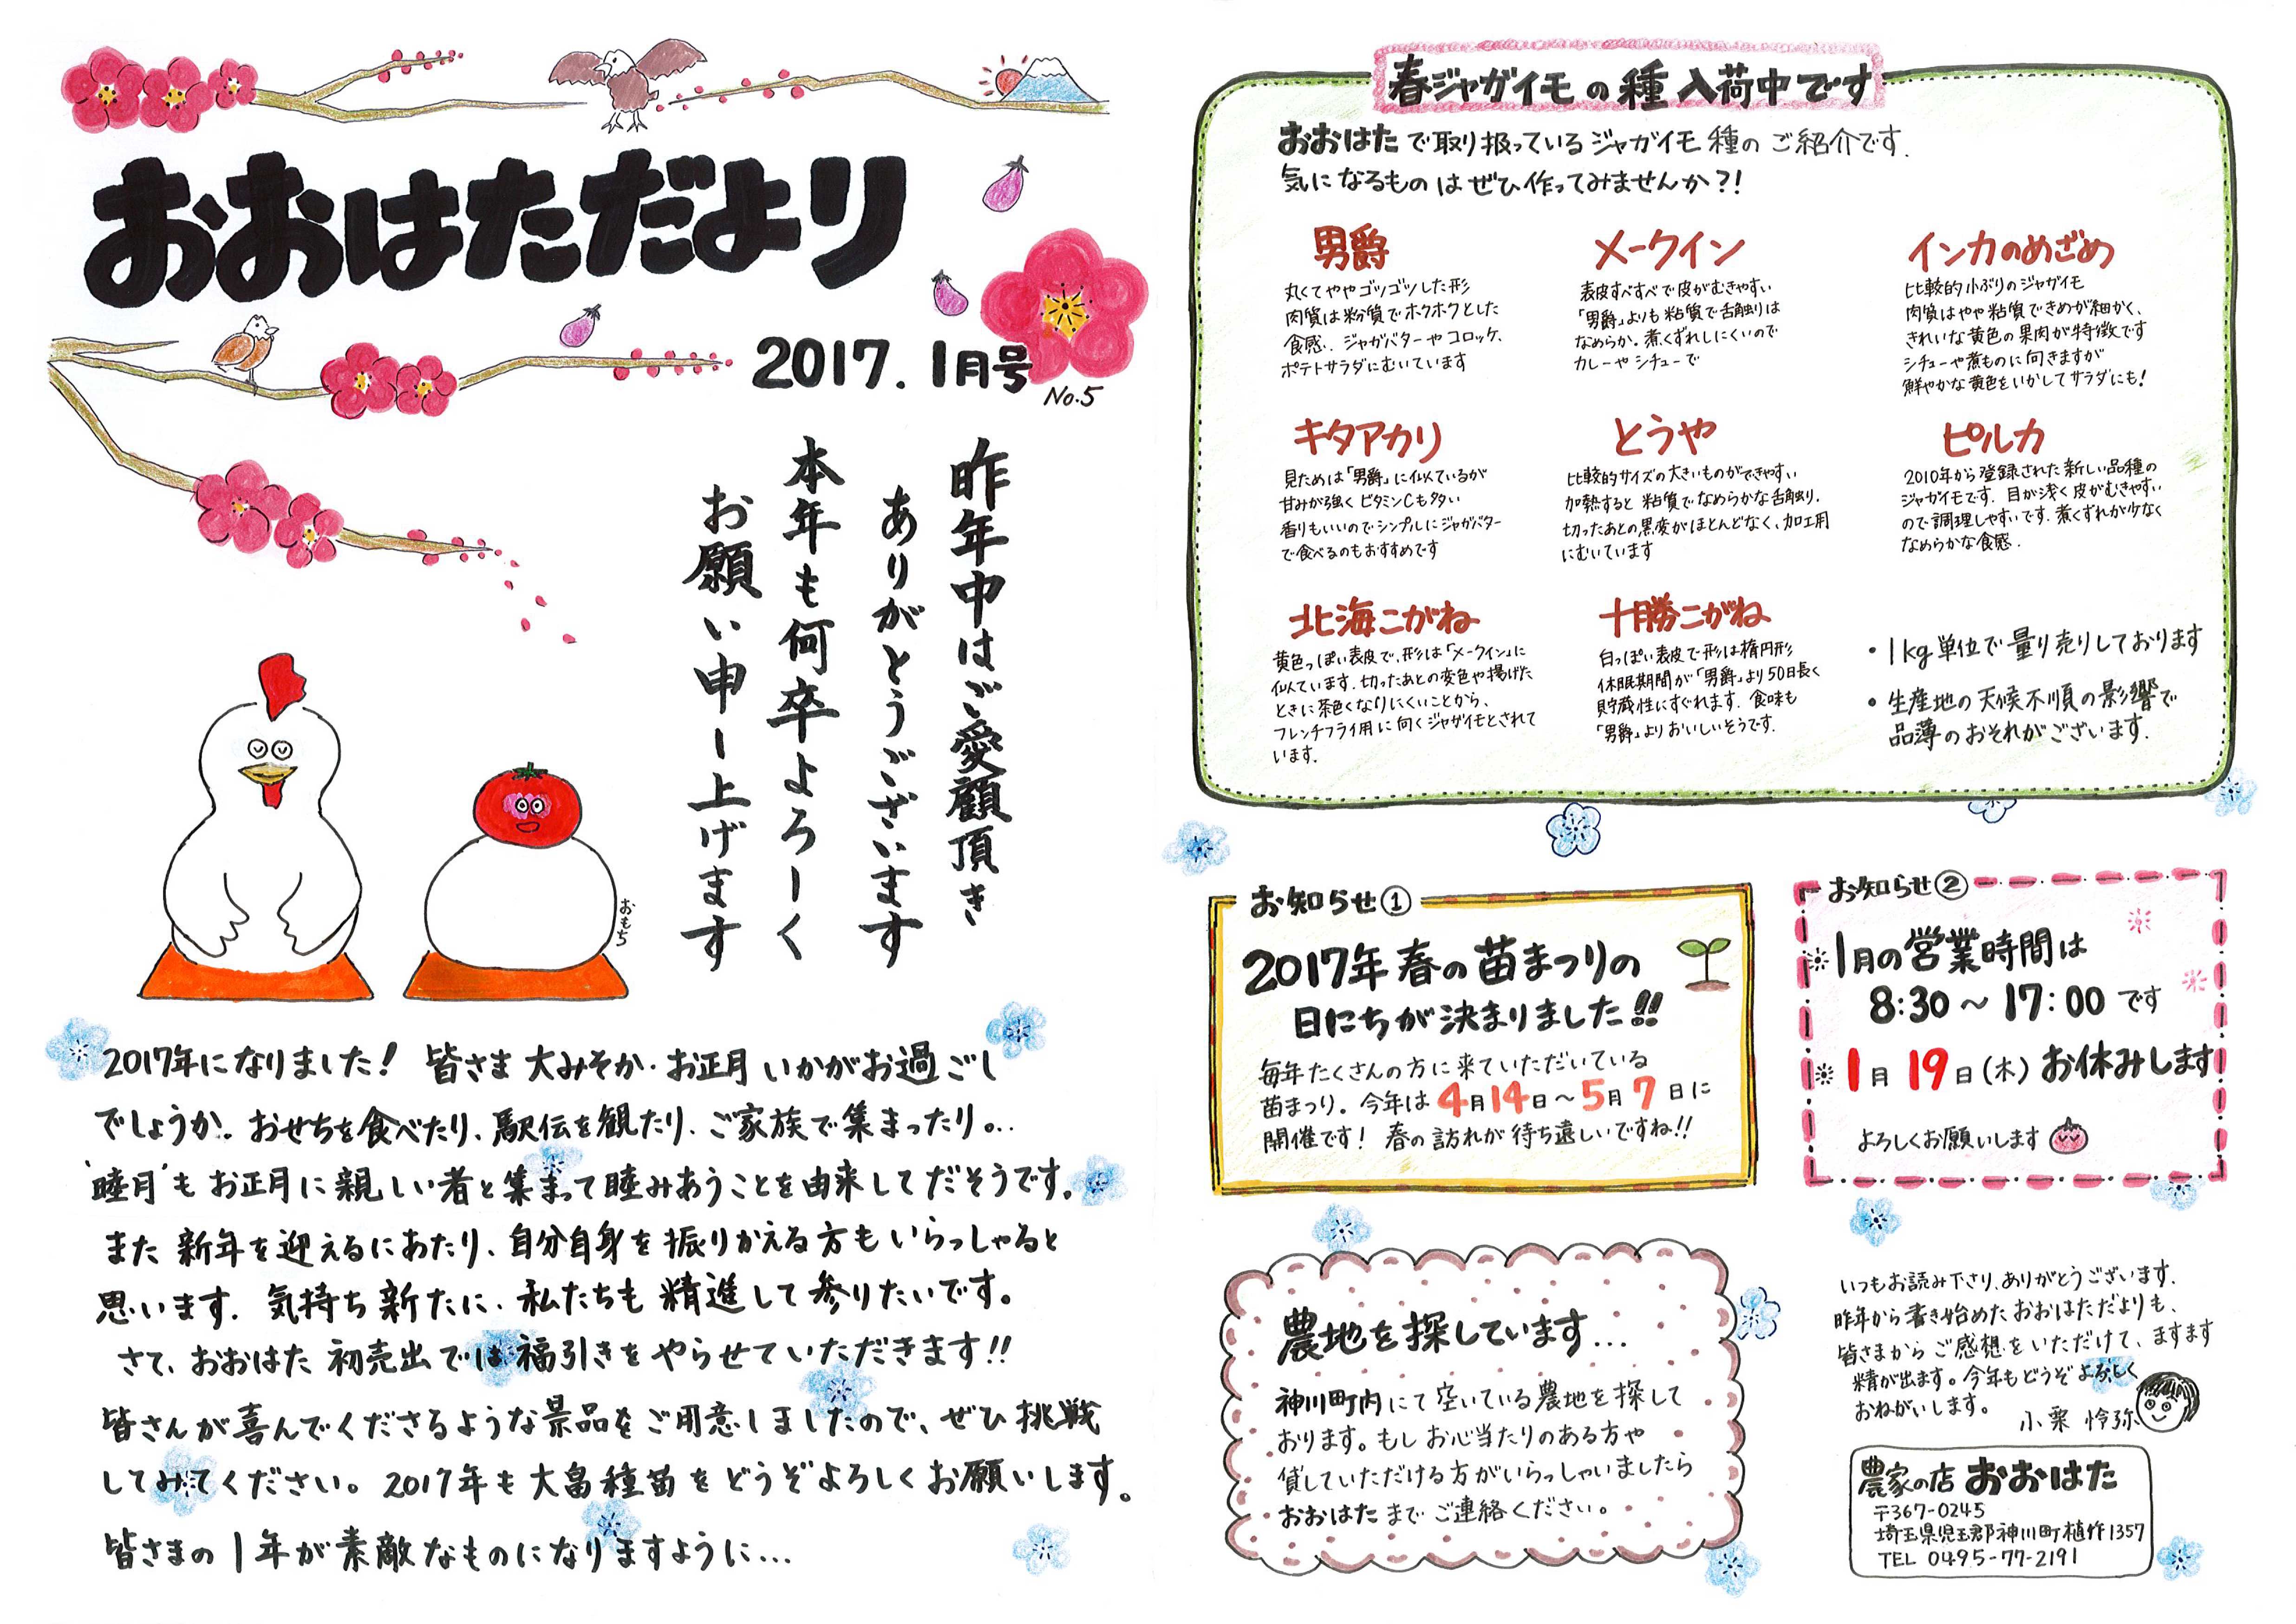 おおはただより
2017. 1月号
No.5
昨年中はご愛顧頂き
ありがとうございます
本年も何卒よろしく
お願い申し上げます
おもち
2017年になりました! 皆さま 大みそか・お正月 いかがお過ごし
でしょうか。おせちを食べたり、駅伝を観たり、ご家族で集まったり。..
'睦月'も お正月に親しい者と集まって睦みあうことを由来してだそうです。
また 新年を迎えるにあたり、自分自身を振りかえる方もいらっしゃると
思います. 気持ち新たに、私たちも精進して参りたいです。
さて、おおはた 初売出では福引きをやらせていただきます!!
皆さんが喜んでくださるような景品をご用意しましたので、ぜひ挑戦
してみてください。2017年も大畠種苗をどうぞよろしくお願いします。
皆さまの1年が素敵なものになりますように...
春ジャガイモの種入荷中です
おおはたで取り扱っているジャガイモ種のご紹介です.
気になるものはぜひ作ってみませんか?!
男爵
丸くてややゴツゴツした形
肉質は粉質でホクホクとした
食感.. ジャガバターやコロッケ、
ポテトサラダにむいています
メークイン
表皮すべすべで皮がむきやすい
「男爵」よりも粘質で舌触りは
なめらか。煮くずれしにくいので
カレーやシチューで
インカのめざめ
比較的小ぶりのジャガイモ
肉質はやや粘質できめが細かく、
きれいな黄色の果肉が特徴です
シチューや煮ものに向きますが
鮮やかな黄色をいかしてサラダにも!
キタアカリ
見ためは「男爵」に似ているが
甘みが強くビタミンCも多い
香りもいいのでシンプルにジャガバター
で食べるのもおすすめです
とうや
比較的サイズの大きいものができやすい
加熱すると粘質でなめらかな舌触り.
切ったあとの黒変がほとんどなく、加工用
にむいています
ピルカ
2010年から登録された新しい品種の
ジャガイモです. 目が浅く皮がむきやすい
ので調理しやすいです. 煮くずれが少なく
なめらかな食感.
北海こがね
黄色っぽい表皮で、形は「メークイン」に
似ています. 切ったあとの変色や揚げた
ときに茶色くなりにくいことから、
フレンチフライ用に向くジャガイモとされて
います.
十勝こがね
白っぽい表皮で形は楕円形
休眠期間が「男爵」より50日長く
貯蔵性にすぐれます. 食味も
「男爵」よりおいしいそうです.
・1kg単位で量り売りしております
・生産地の天候不順の影響で
品薄のおそれがございます.
お知らせ①
2017年 春の苗まつりの
日にちが決まりました!!
毎年たくさんの方に来ていただいている
苗まつり。今年は4月14日〜5月7日に
開催です! 春の訪れが待ち遠しいですね!!
お知らせ②
1月の営業時間は
8:30〜17:00 です
1月19日(木) お休みします
よろしくお願いします
農地を探しています...
神川町内にて空いている農地を探して
おります。もしお心当たりのある方や
貸していただける方がいらっしゃいましたら
おおはたまでご連絡ください。
いつもお読み下さり、ありがとうございます.
昨年から書き始めたおおはただよりも、
皆さまからご感想をいただけて、ますます
精が出ます。今年もどうぞよろしく
おねがいします。
小栗 怜弥
農家の店 おおはた
〒367-0245
埼玉県児玉郡神川町植竹1357
TEL 0495-77-2191